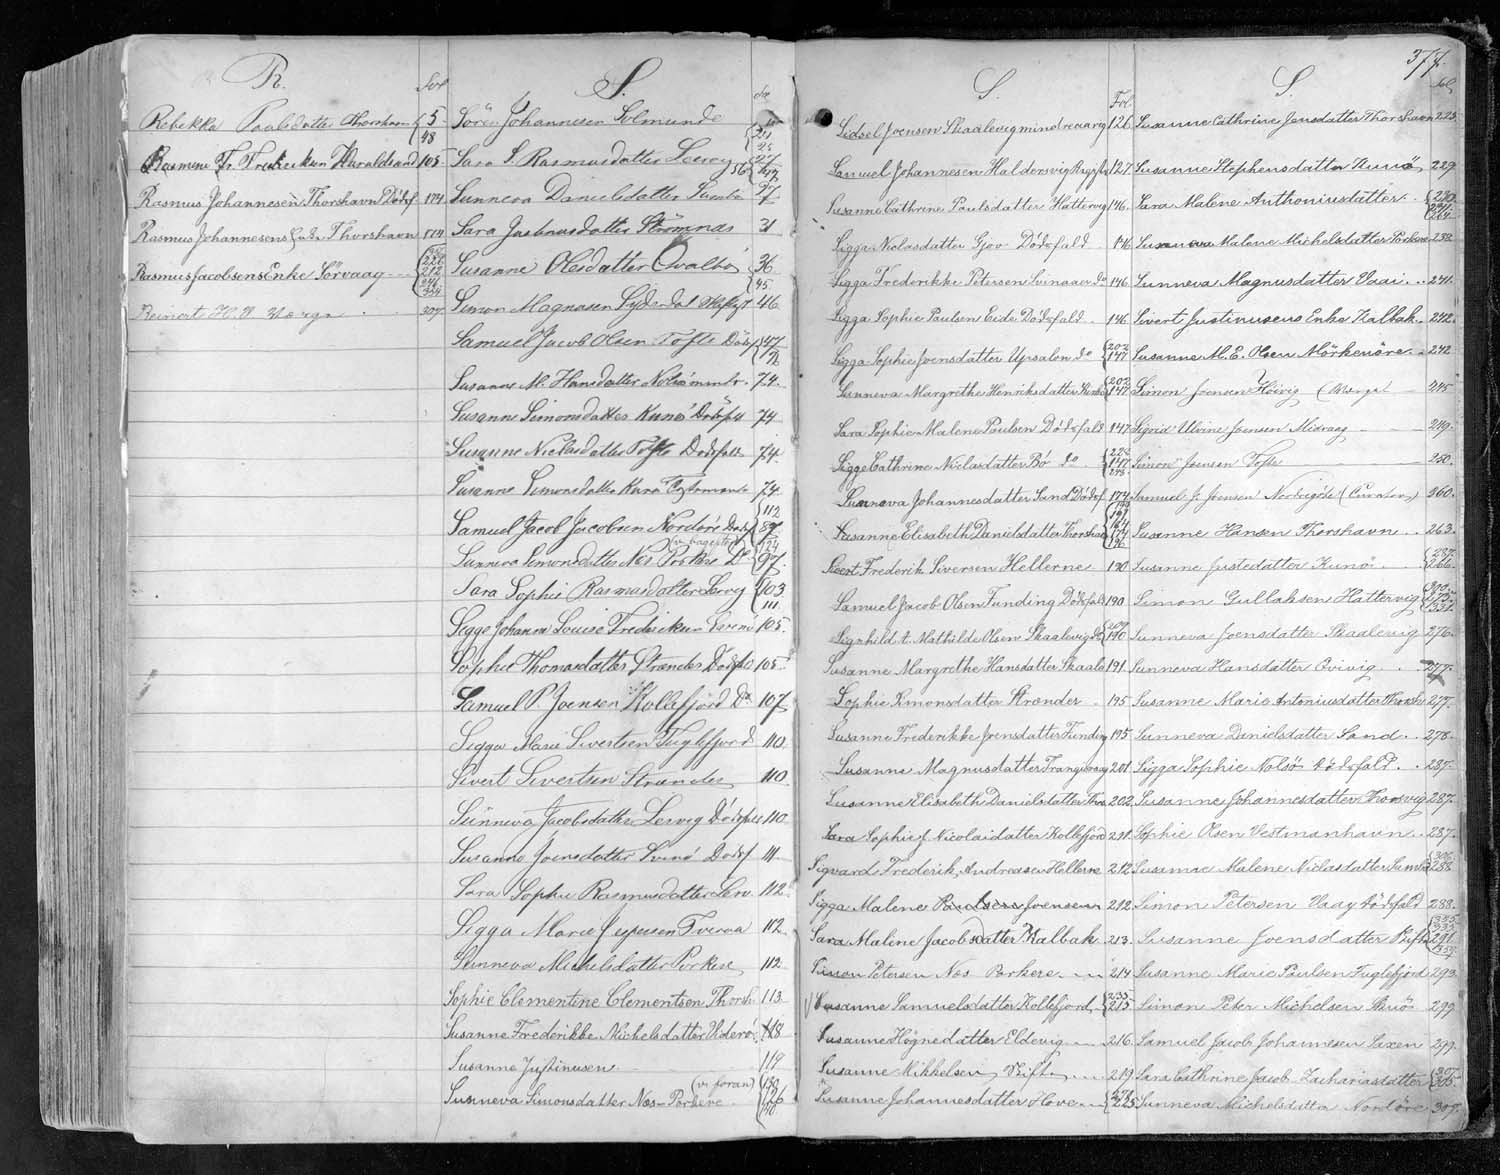 R.
Fol
Rebekka Poulsdatter Thorshavn 5 48
Rasmine Fr. Frederiksen Haraldssund 105
Rasmus Johannesen Thorshavn Dödsf. 174
Rasmus Johannesens Enke Thorshavn 174
Rasmus Jacobsens Enke Sörvaag 212 354
Reinert H. N. Værge 307
S.
Sören Johannesen Solmunde
Sara S. Rasmusdatter Lervig 56
Sunneva Danielsdatter Sumbö 27
Sara Justinusdatter Strömnæs 31
Susanne Olesdatter Qvalbö 36
Simon Magnusen Syderdal Skiftet 45 46
Samuel Jacob Olsen Tofte Dödsf 47
Susanne M. Hansdatter Nolsö 74
Susanne Simonsdatter Kunö Dödsfa 74
Susanne Niclasdatter Tofte Dödsfald 74
Susanne Simonsdatter Kunö Testamente 74
Samuel Jacob Jacobsen Nordöre Dødsf 112 87 124
(v. bagefter)
Sunneva Simonsdatter Næs Porkere Do 97
Sara Sophie Rasmusdatter Lervig 103 111
Sigge Johanne Louise Frederiksen Svinö 105
Sophie Thomasdatter Strænder Dødsfa 105
Samuel P. Joensen Kollefjord Do 107
Sigga Marie Sivertsen Fuglefjord 110
Sivert Sivertsen Strænder 110
Sunneva Jacobsdatter Lervig Dödsfald 110
Susanne Joensdatter Svinö Dödsf 111
Sara Sophie Rasmusdatter Lerv. 112
Sigga Marie Jespersen Tveraa 112
Sunneva Michelsdatter Porkere 112
Sophie Clementine Clementsen Thorsh 113
Susanne Frederikke Michelsdatter Viderö 118
Susanne Justinusen 119
(v. foran)
Sunneva Simonsdatter Næs-Porkere 120 126
S.
Fol.
Sidsel Joensen Skaalevig mindreaarig 126
Samuel Johannesen Haldersvig 127
Susanne Cathrine Paulsdatter Hattervig 146
Sigga Niclasdatter Gjov Dödsfald 146
Sigga Frederikke Petersen Svinaaer do 146
Sigga Sophie Paulsen Eide Dödsfald 146
Sigga Sophie Joensdatter Upsalon do 202 147
Sunneva Margrethe Henriksdatter 202 147
Sara Sophie Malene Paulsen Dödsfald 147
Sigge Cathrine Niclasdatter Bö do 147
Sunneva Johannesdatter Sand Dödsf 174
Susanne Elisabeth Danielsdatter Thorshavn 191 164 174 196
Sivert Frederik Siversen Hellerne 190
Samuel Jacob Olsen Funding Dödsfald 190
Signhild A. Mathilde Olsen Skaalevig 190
Susanne Margrethe Hansdatter Skaale 191
Sophie Simonsdatter Strænder 195
Susanne Frederikke Joensdatter Funding 195
Susanne Magnusdatter Trangisvaag 201
Susanne Elisabeth Danielsdatter Thor 202
Sara Sophie f. Nicolaidatter Kollefjord 291
Sigvard Frederik Andreasen Hellerne 212
Sigga Malene Paulsen Joensen 212
Sara Malene Jacobsdatter Kalbak 213
Simon Petersen Næs Porkere 214
Susanne Samuelsdatter Kollefjord 235 215
Susanne Högnedatter Eldevig 216
Susanne Mikkelsen Skifte 219
Susanne Johannesdatter Hove 225
377.
S.
Fol
Susanne Cathrine Jensdatter Thorshavn 225
Susanne Stephensdatter Kunö 229
Sara Malene Anthoniusdatter 230 241 264
Susanna Malene Michelsdatter Porkere 238
Sunneva Magnusdatter Vaai 241
Sivert Justinusens Enke Kalbak 242
Susanne M. E. Olsen Mörkenöre 242
Simon Joensen Höivig (Værge) 245
Sigrid Ulvine Joensen Midvaag 249
Simon Joensen Tofte 250
Samuel J. Joensen Nordrigöte (Curator) 260
Susanne Hansen Thorshavn 263
Susanne Justedatter Kunö 287 266
Simon Gullaksen Hattervig 300 275 331
Sunneva Joensdatter Skaalevig 276
Sunneva Hansdatter Qvivig 277
Susanne Marie Antoniusdatter Thorsh 277
Sunneva Danielsdatter Sand 278
Sigga Sophie Nolsö Dødsfald 287
Susanne Johannesdatter Kvanvig 287
Sophie Olsen Vestmanhavn 287
Susanne Malene Niclasdatter Sumbö 306 288
Simon Petersen Vaag Dödsfald 288
Susanne Joensdatter Skifte 335 291
Susanne Marie Paulsen Fuglefjord 293
Simon Peter Michelsen Skuö 299
Samuel Jacob Johannesen Saxen 299
Sara Cathrine Jacob Zachariasdatter 307 305
Sunneva Michelsdatter Nordöre 307